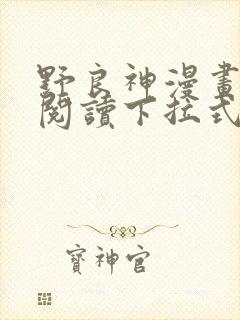 野良神漫畫
閱讀下拉式
寶神官